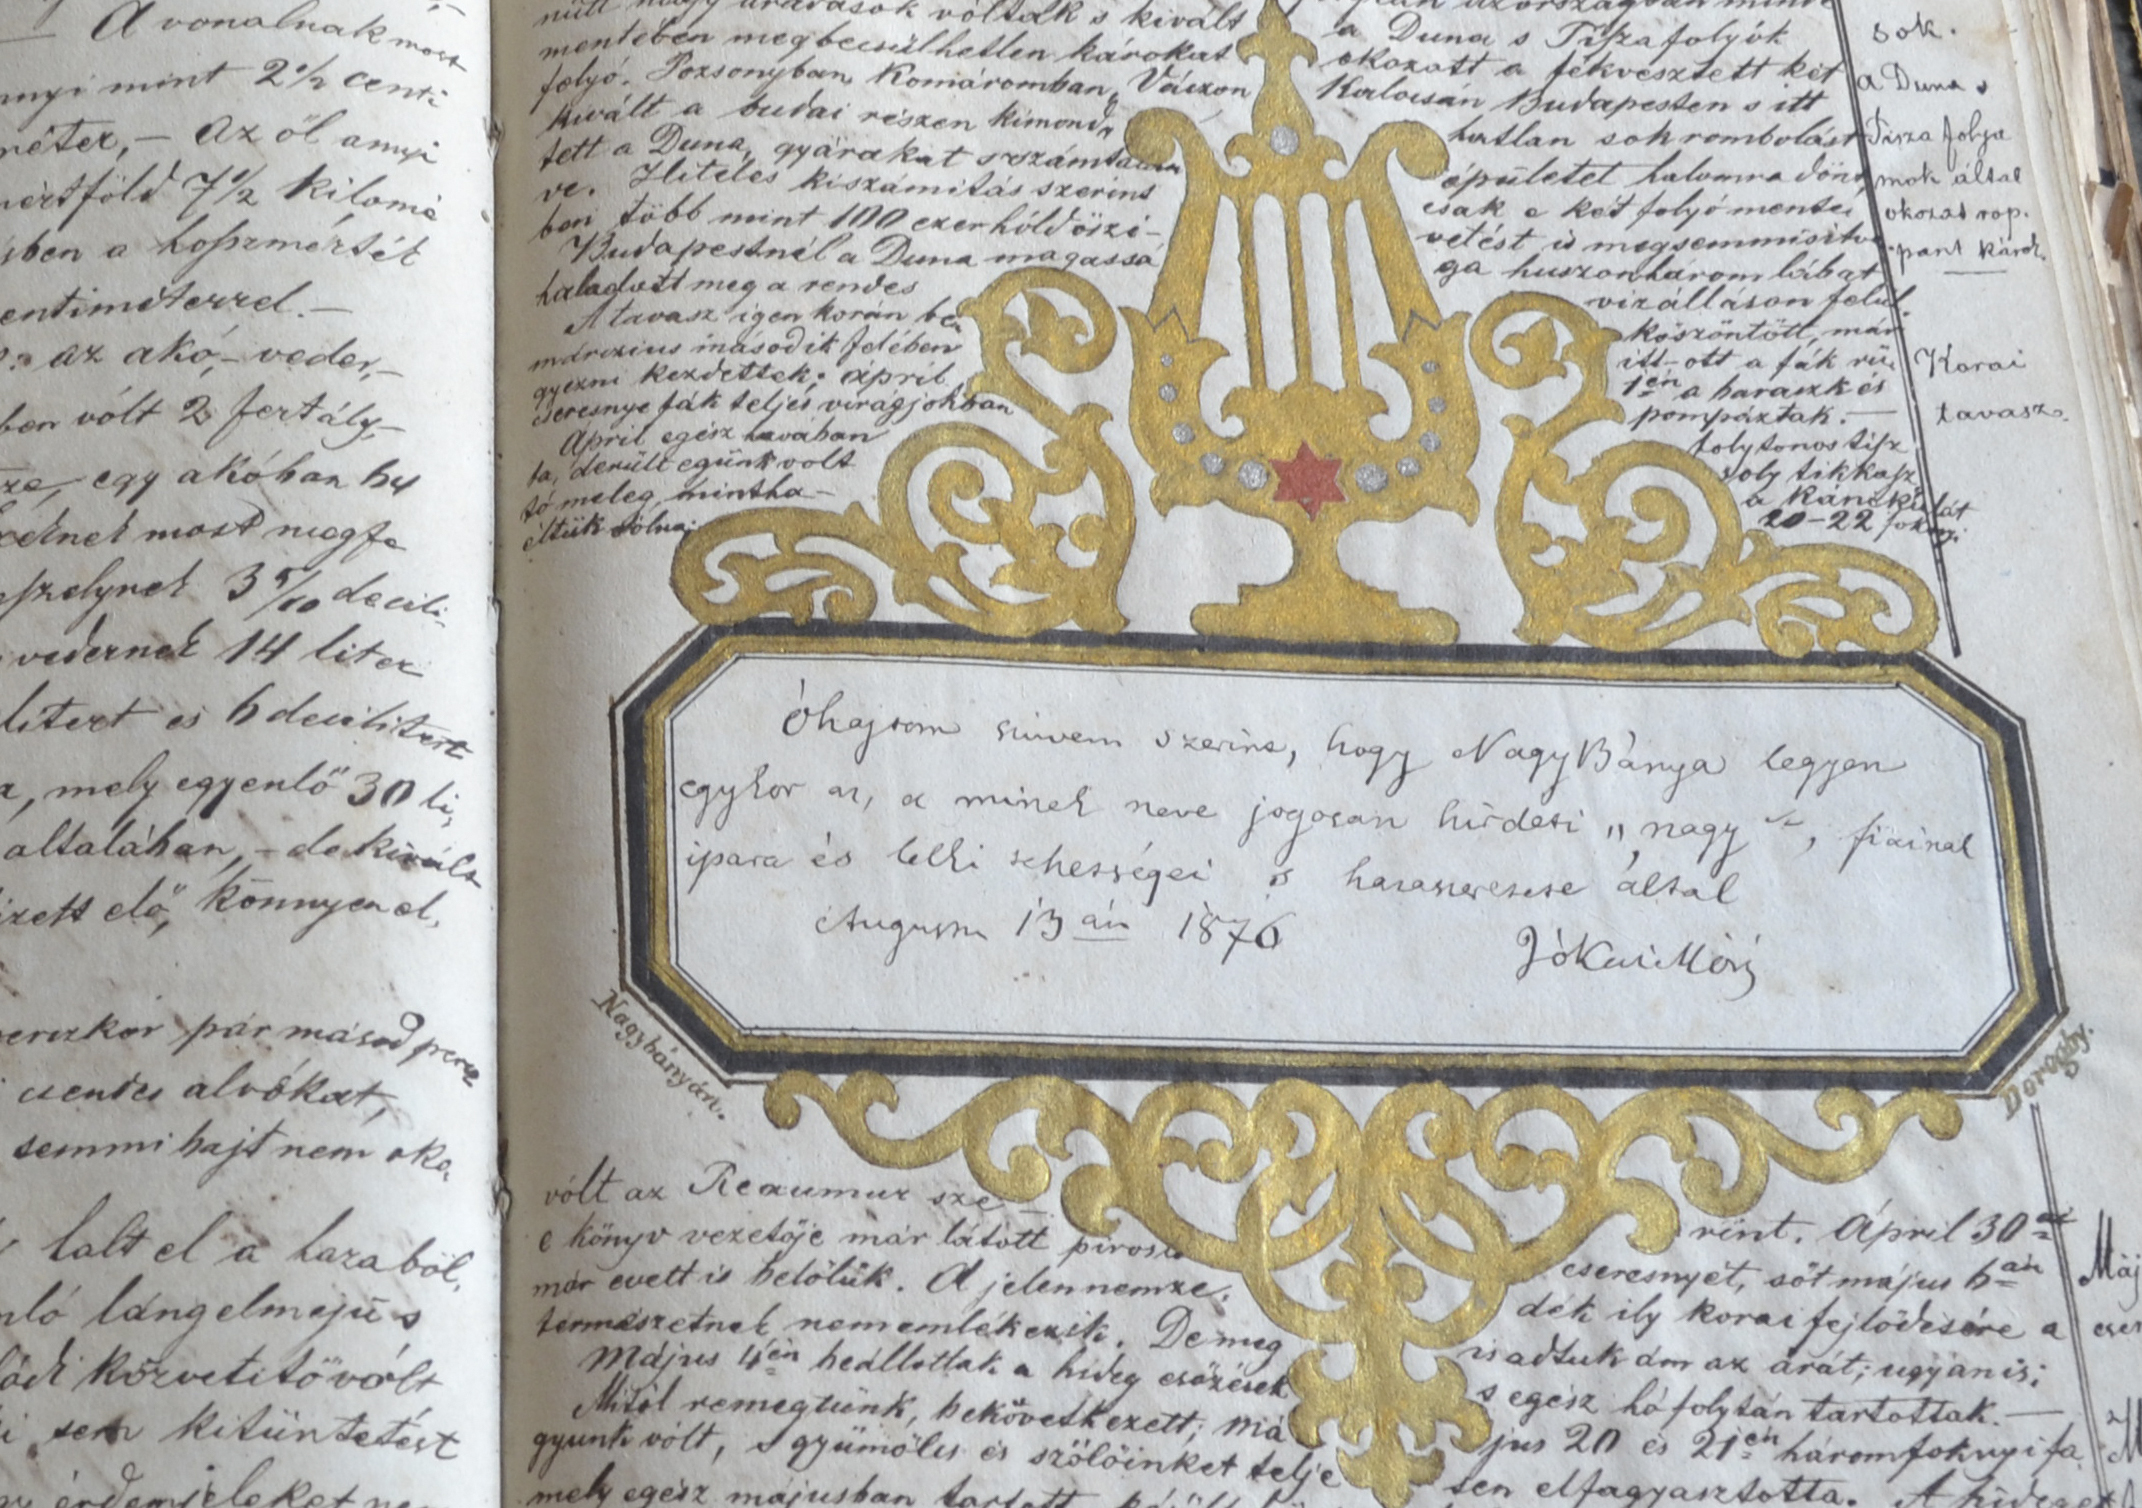 A vonalnak most
nyi mint 2½ centi
méter, – Az öl annyi
mértföld 7½ kilomé
ben a hoszmérték
centiméterrel. –
az akó, – veder, –
ben vólt 2 fertály, –
egy akóban 64
most megfe
3 5/10 decili,
vedernek 14 liter
litert és 6 decilitert
mely egyenlő 30 li,
általában, – de kivált
elő, könnyen el,
pár másod percz
csendes alvókat,
semmi bajt nem oko,
halt el a hazaból,
lángelmejü s
közvetitő vólt
sem kitüntetést
érdemjeleket nem
nütt nagy áradások vóltak s kivált
mentében megbecsülhetlen károkat
folyó. Pozsonyban, Komáromban, Váczon
kivált a budai részen kimond,
tett a Duna, gyárakat s számtalan
ve. Hiteles kiszámitás szerint
ben több mint 100 ezer hóld őszi –
Budapestnél a Duna magassá
haladott meg a rendes
A tavasz igen korán be,
márczius második felében
gyezni kezdettek; april
cseresnye fák teljes virágjokban
April egész havában
ta, derült egünk volt
tó meleg, mintha –
éltük vólna;
az országban minde
a Duna s Tisza folyók
okozott a fékvesztett két
Kalocsán Budapesten s itt
hatlan sok rombolást
épületet halomra dönt,
csak e két folyó mentei
vetést is megsemmisitve.
ga huszonhárom lábat
vizálláson felül.
köszöntött, már
itt-ott a fák rü,
1én a baraszk és
pompáztak. –
folytonos tisz
oly tikkasz
20–22 foknyi
sok.
a Duna s
Tisza folya
mok által
okozat rop.
pant károk.
Korai
tavasz.
Óhajtom szivem szerint, hogy NagyBánya legyen
egykor az, a minek neve jogosan hirdeti „nagy“, fiainak
ipara és lelki tehességei s hazaszeretete által
Augustus 13 án 1876
Jókai Mór
Nagybányán.
vólt az Reaumur sze –
e könyv vezetője már látott piros
már evett is belőlük. A jelen nemze,
természetnek nem emlékezik. De meg
Május 4én beállottak a hideg esőzések
Mitöl remegtünk, bekövetkezett; má
gyunk vólt, s gyümölcs és szőlőinket telje
mely egész májusban tartott
rint. April 30án
cseresnyét, sőt május 6án
dék ily korai fejlődésére a
is adtuk ám az árát; ugyanis;
s egész hó folytán tartottak. –
jus 20 és 21én háromfoknyi fa,
sen elfagyasztotta. A hideg
Máj